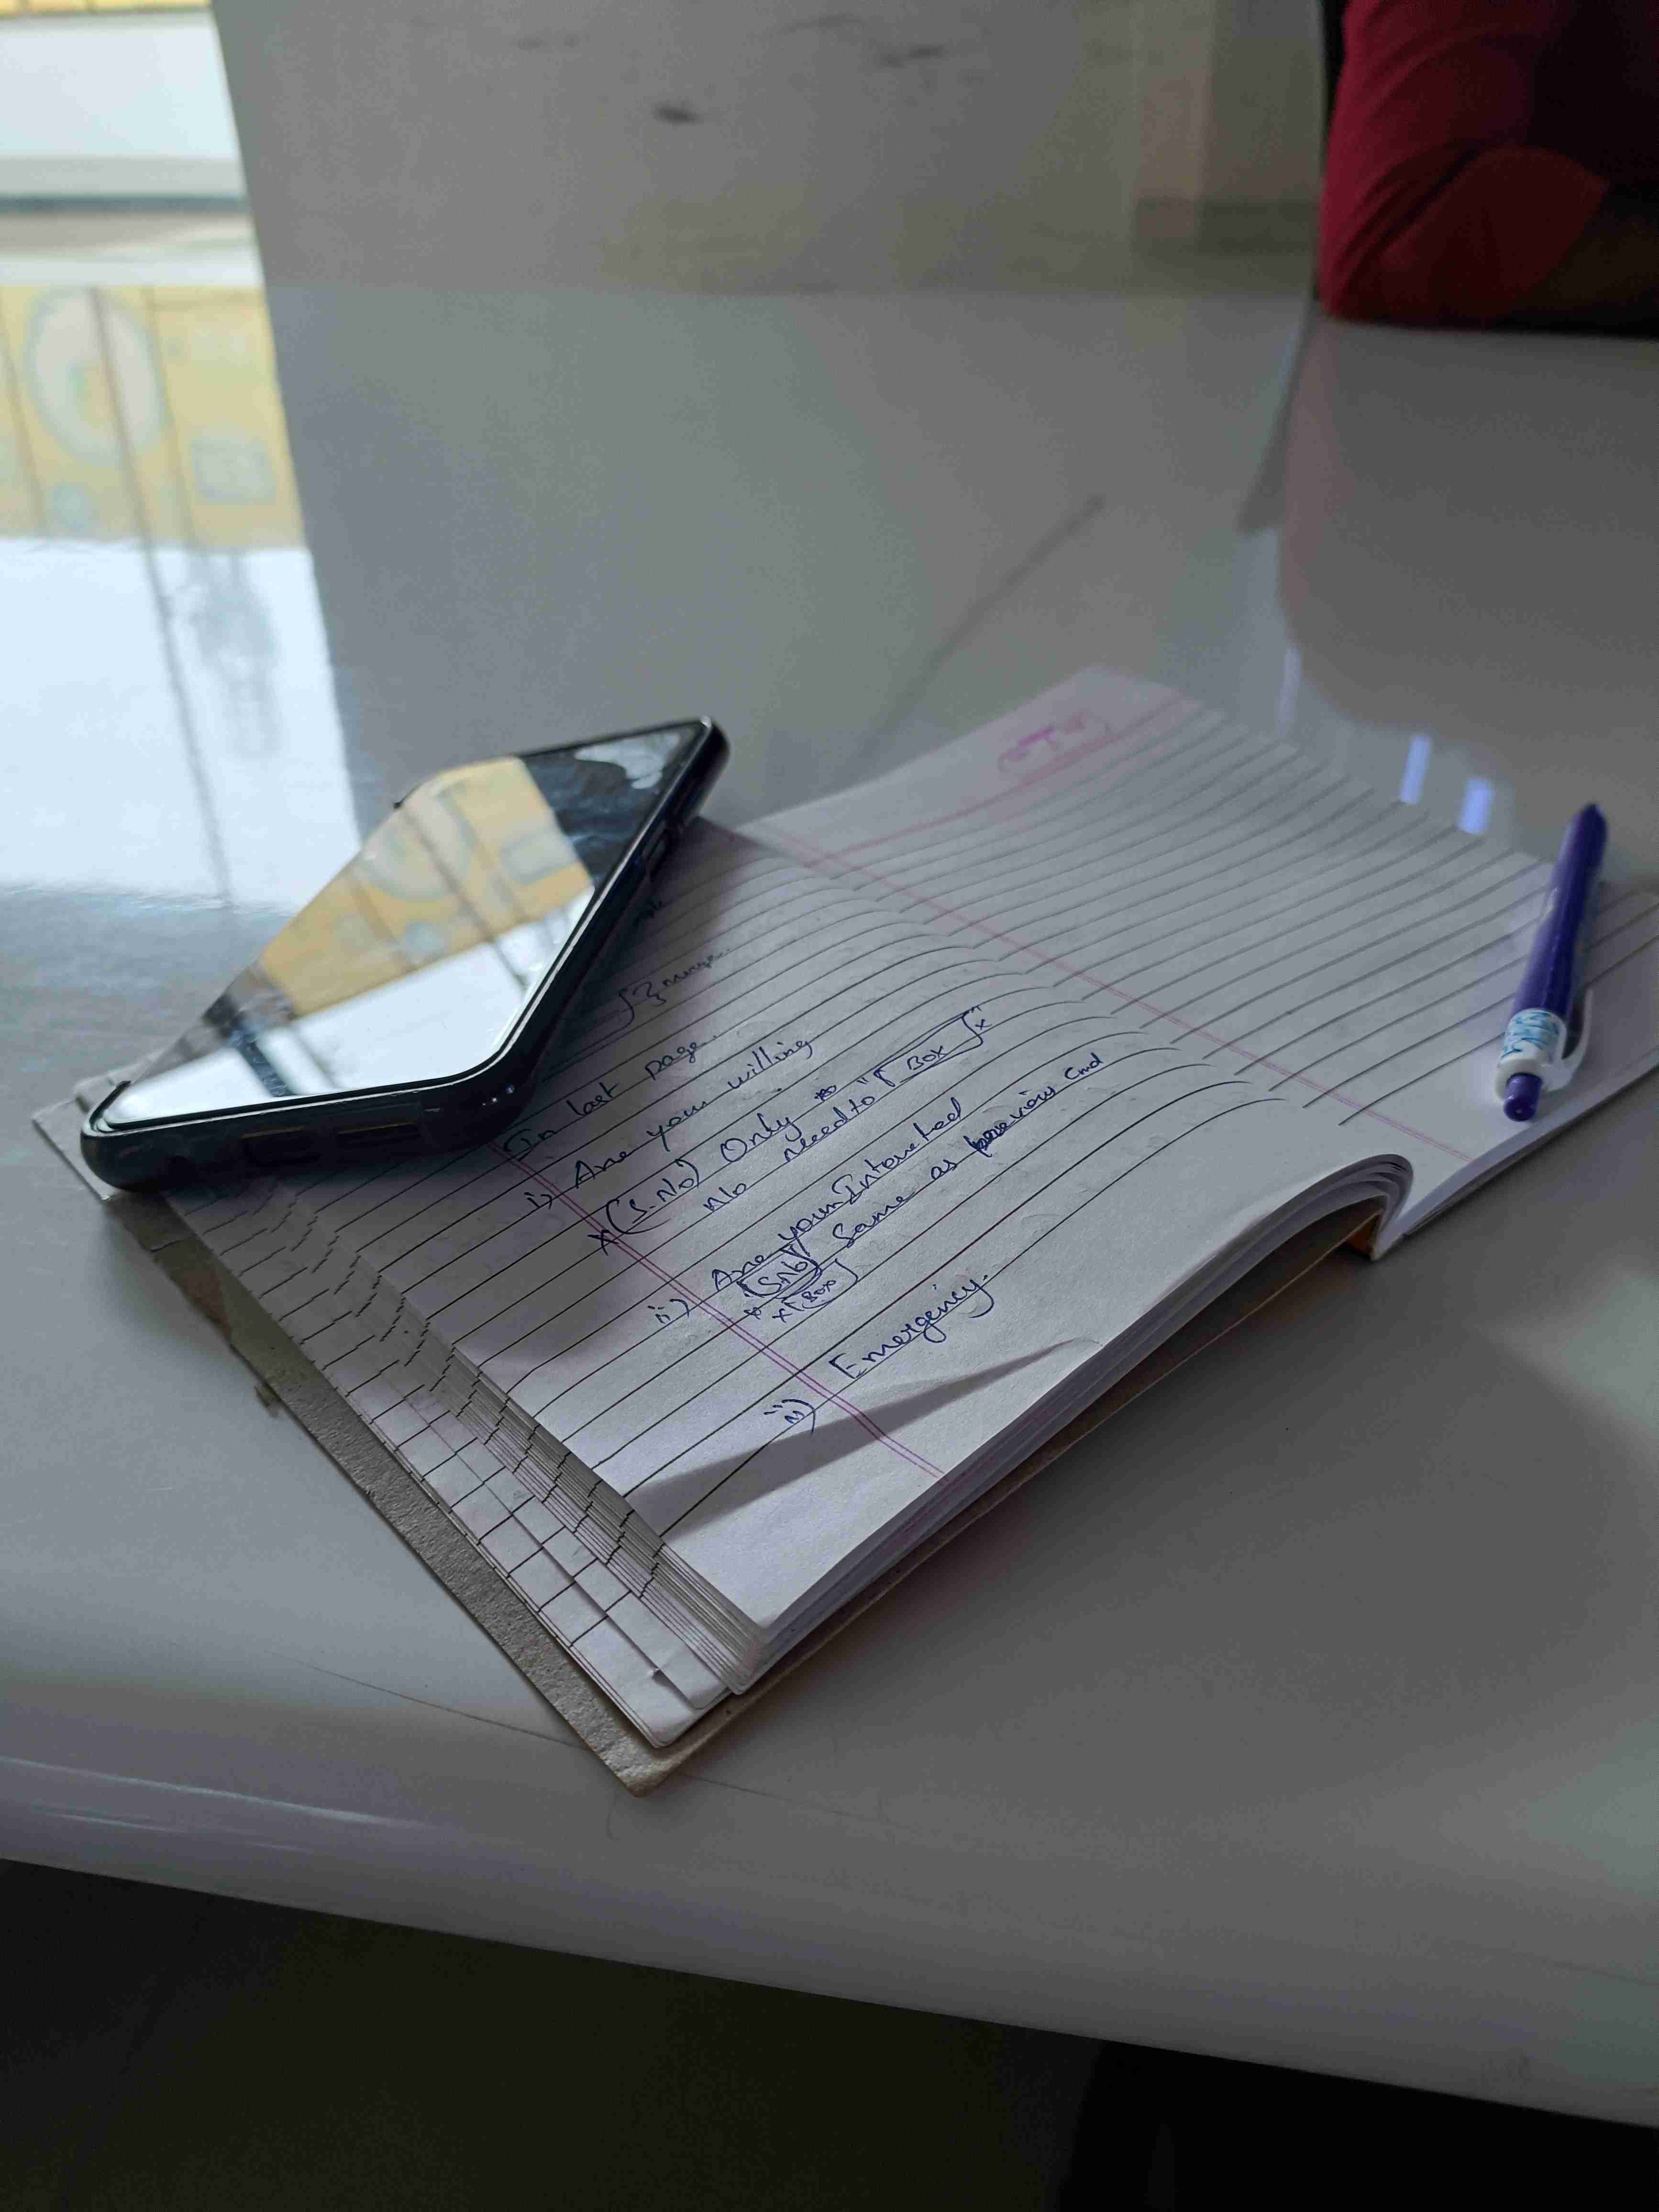 In last page.
i) Are your willing
x (S.No) Only
no need to "[Box]" x
ii) Are your Interested
(Sno) Same as previous Cmd
x [Box]
iii) Emergency.